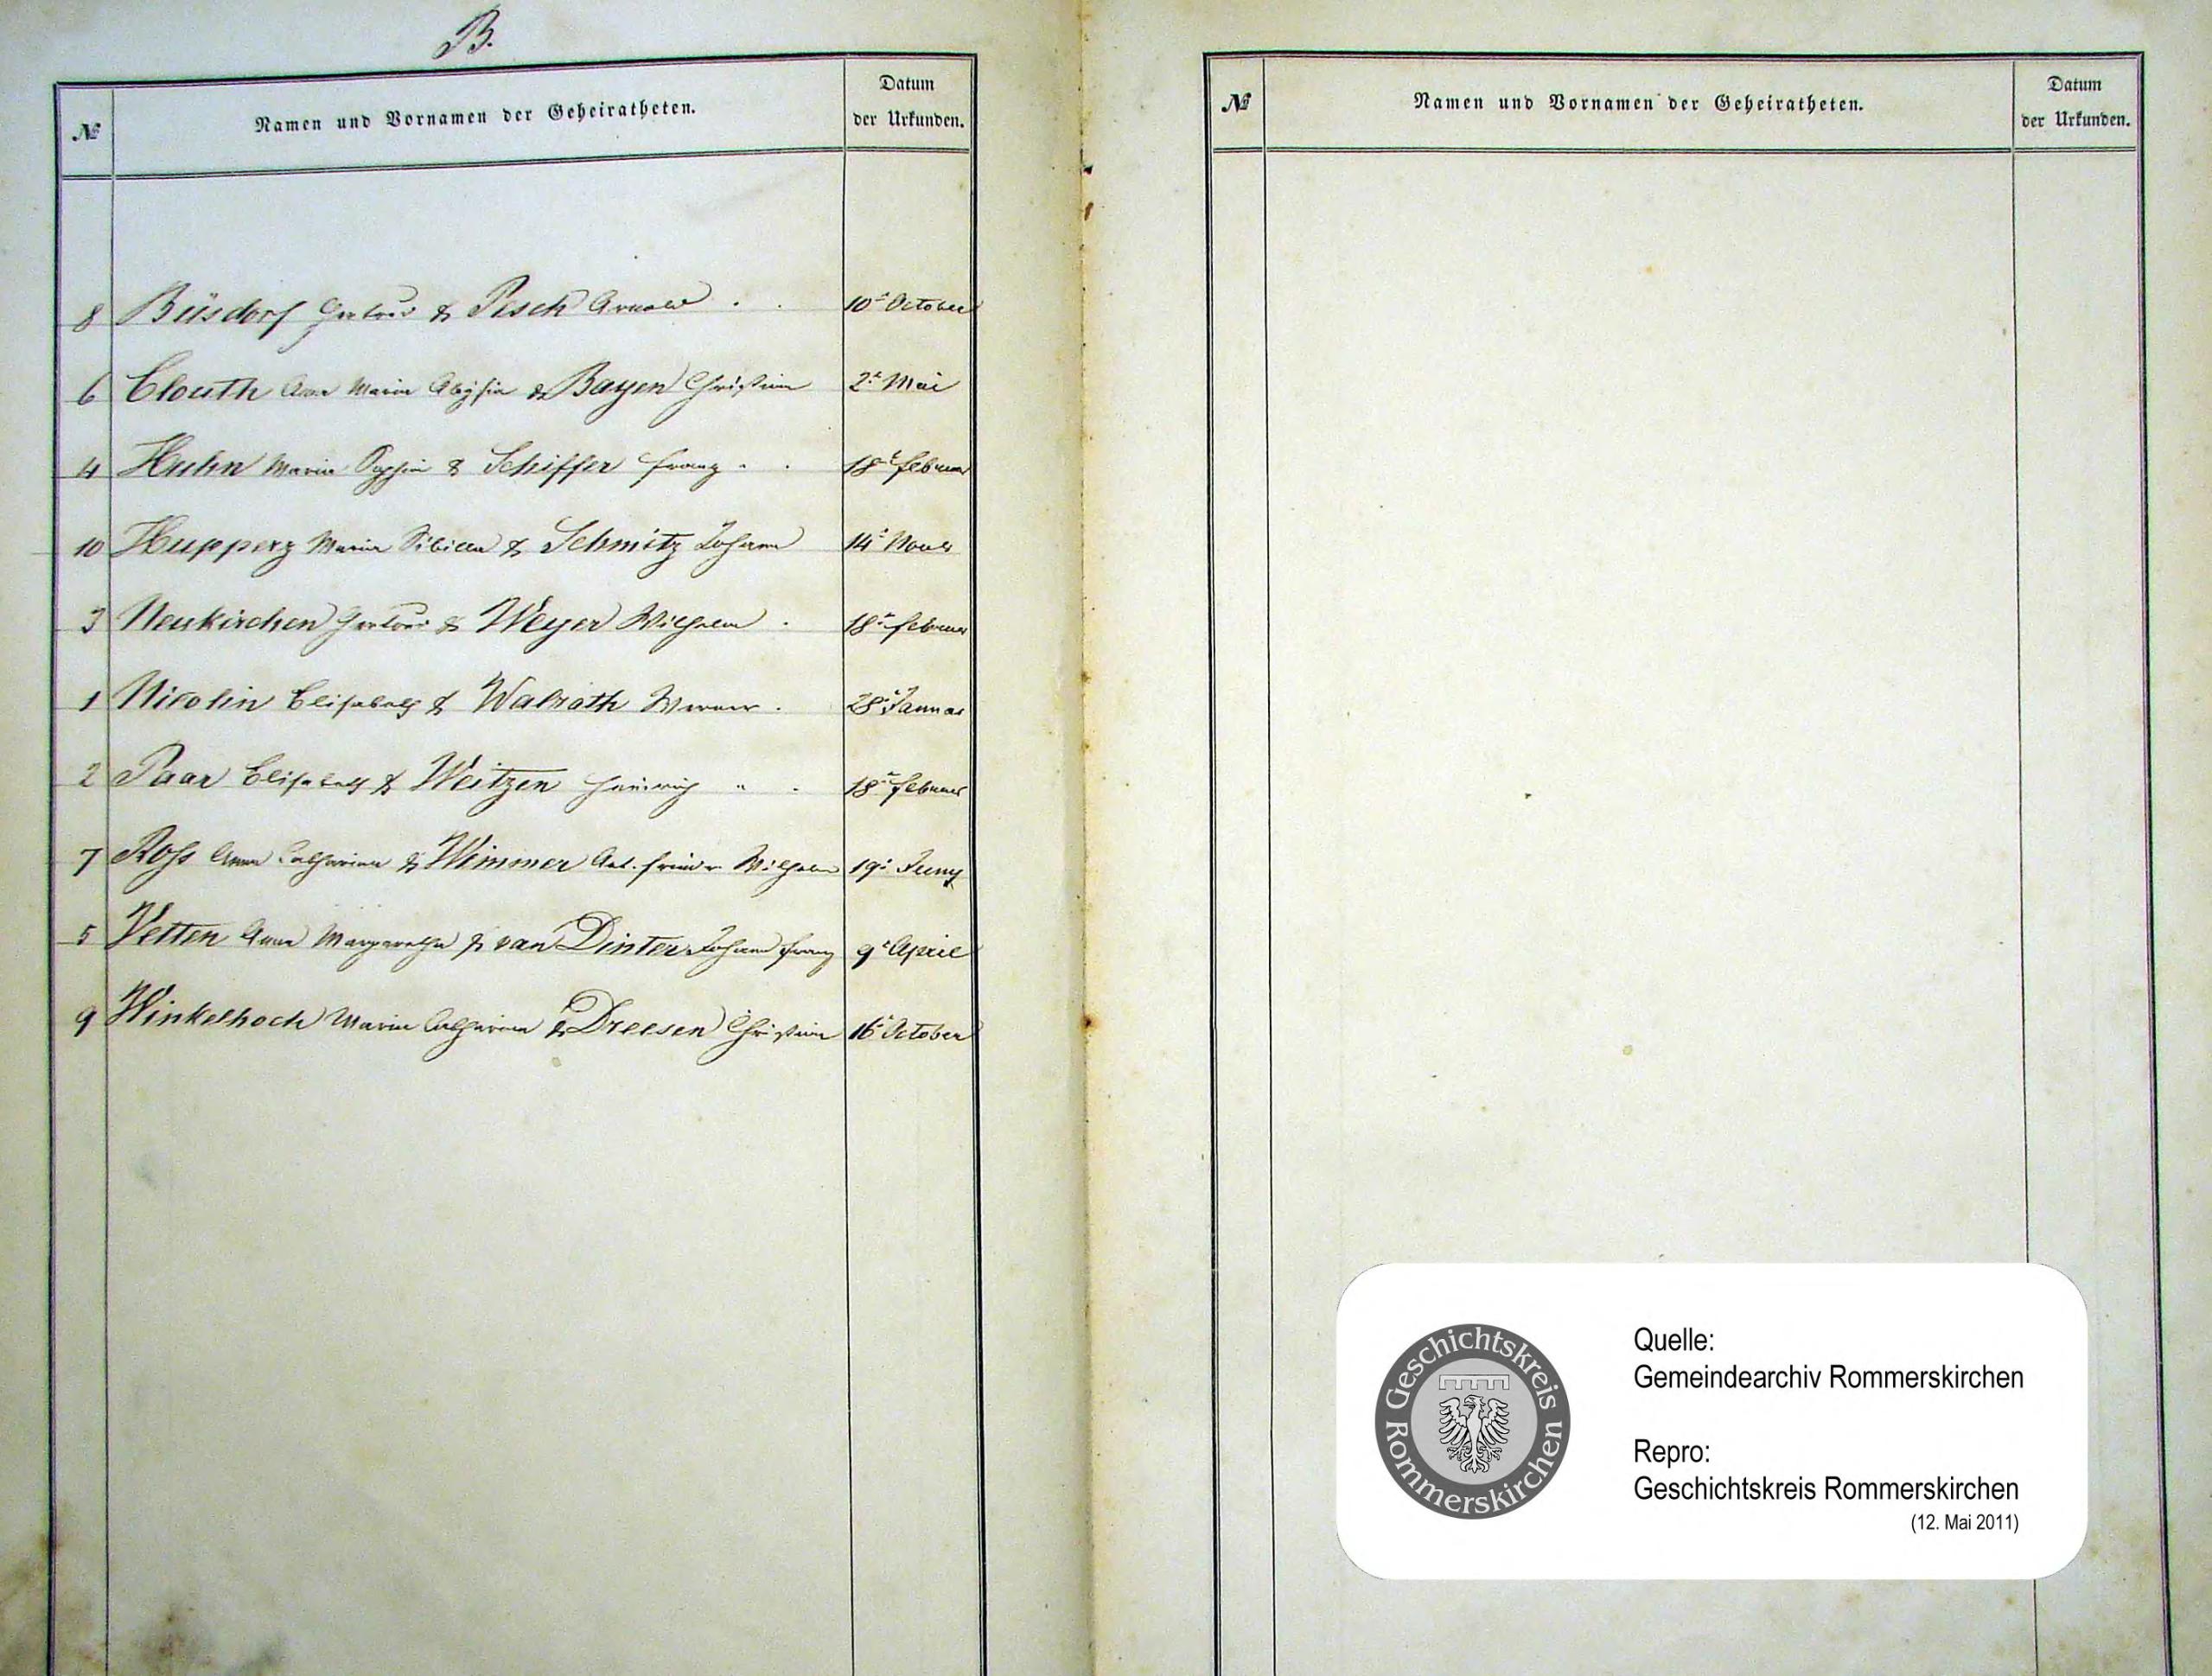 B.
№ Namen und Vornamen der Geheiratheten. Datum der Urkunden.
8 Büsdorf Gertrud & Pesch Arnold 10t October
6 Clouth Anna Maria Aloysia & Bayen Christian 2t Mai
4 Huhn Maria Sophia & Schiffer Franz 18t Februar
10 Hupperz Maria Sibilla & Schmitz Johann 14t
3 Neukirchen Gertrud & Weyer Wilhelm 18t Februar
1 Nicolin Elisabeth & Walrath Werner 28t Januar
2 Paar Elisabeth & Weitzen Heinrich 18t Februar
7 Ross Anna Catharina & Wimmer Wilhelm 19t Juny
5 Vetten Anna Margaretha & van Dinter Johann Franz 9t April
9 Winkelhoch Maria Catharina & Dreesen Christian 16t October
№ Namen und Vornamen der Geheiratheten. Datum der Urkunden.
Geschichtskreis Rommerskirchen
Quelle:
Gemeindearchiv Rommerskirchen
Repro:
Geschichtskreis Rommerskirchen
(12. Mai 2011)